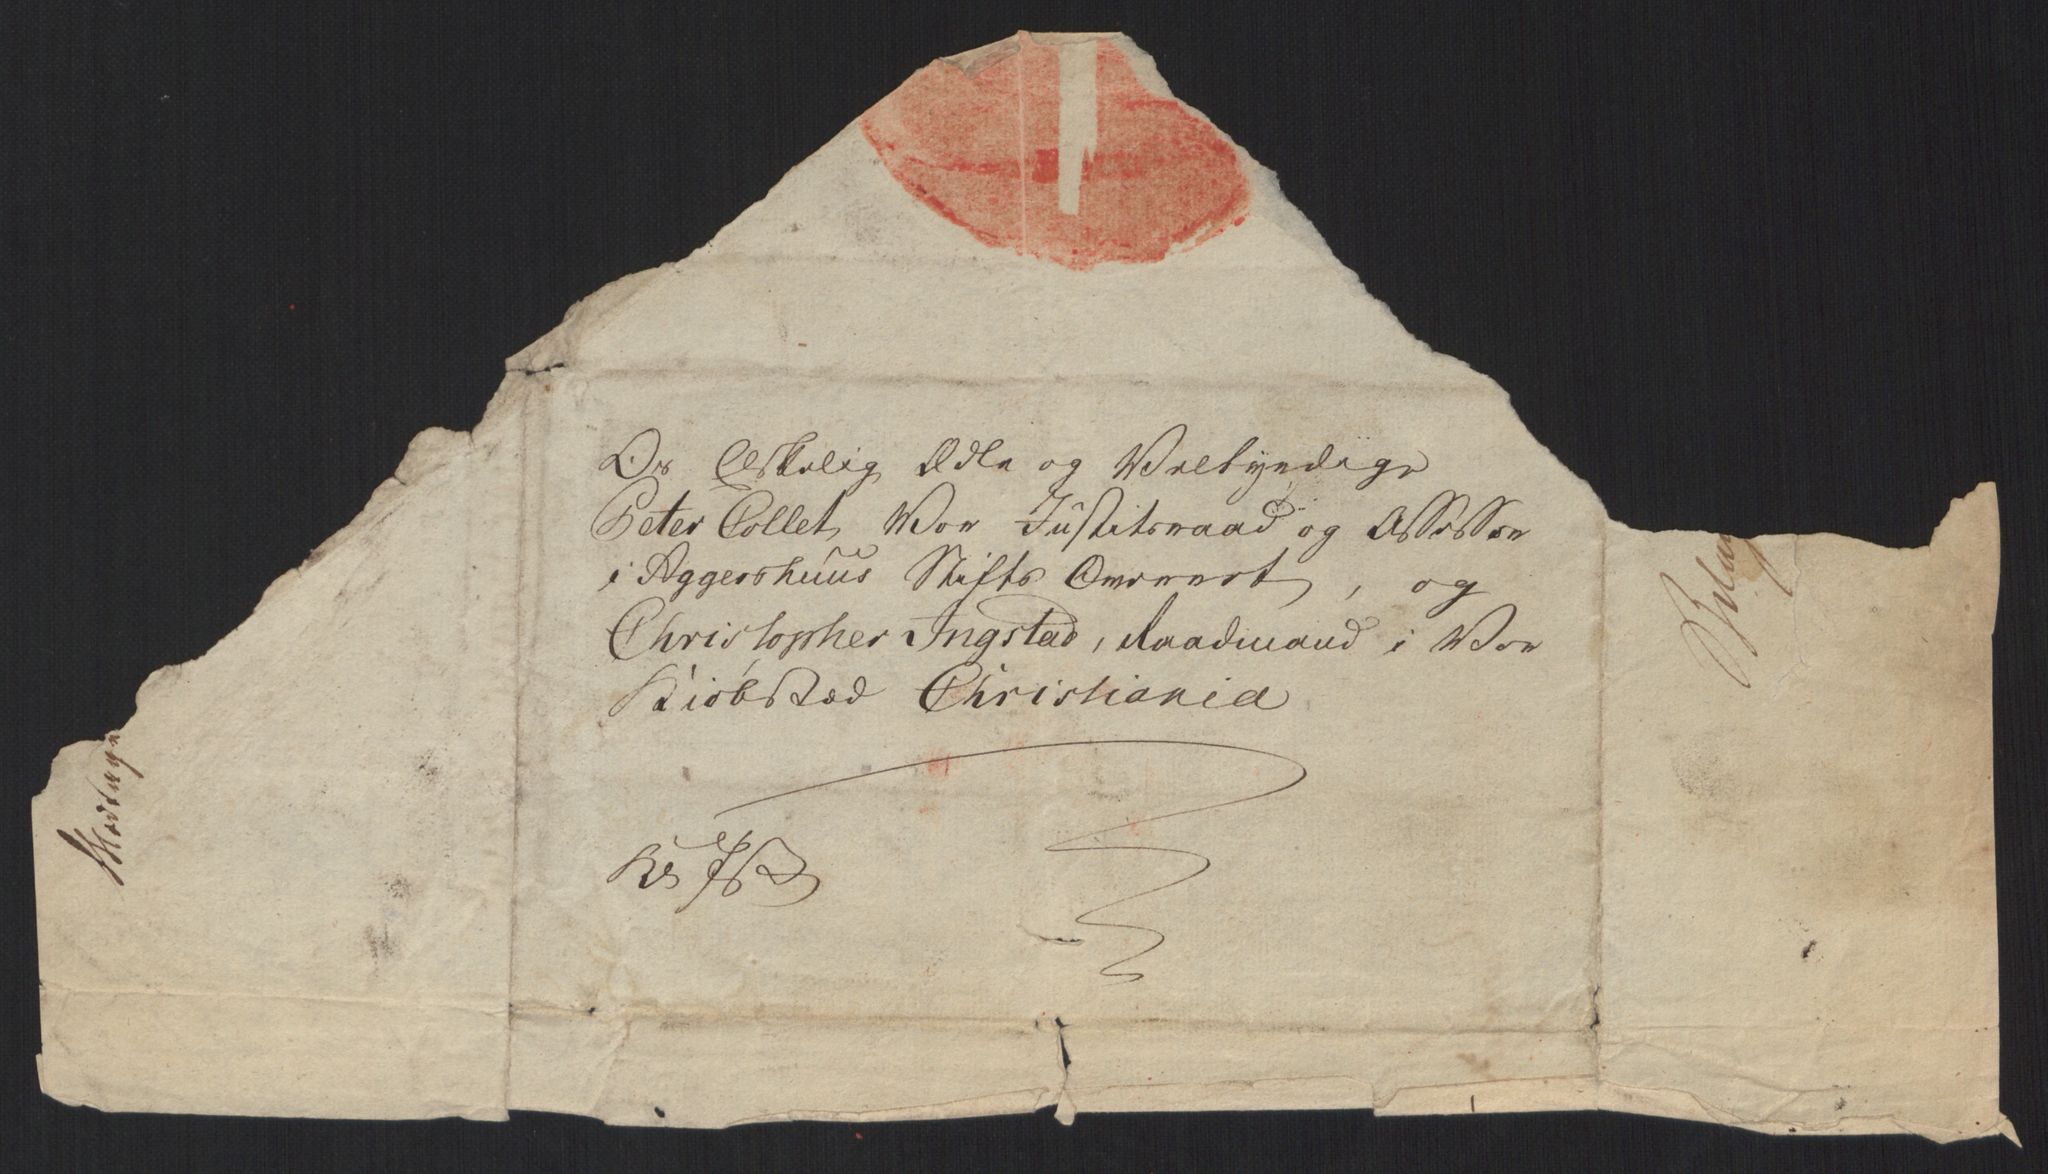 Os Elskelig Ædle og Velbyrdige
Peter Collet, Vor Justitsraad og Assessor
i Aggershuus Stifts Overret, og
Christopher Ingstad, Raadmand i Vor
Kiøbstæd Christiania